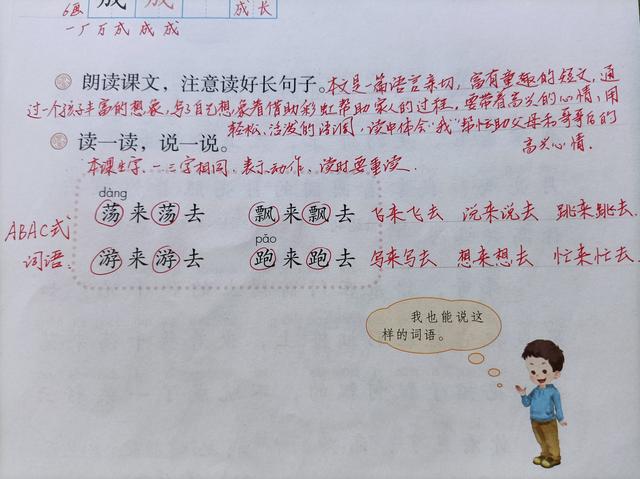 成 成 成长
6画
一厂万成成成
朗读课文，注意读好长句子。本文是一篇语言亲切，富有童趣的短文，通
过一个孩子丰富的想象，写了自己想象着借助彩虹帮助家人的过程，要带着高兴的心情，用
轻松、活泼的语调，读中体会"我"帮忙助父母和哥哥后的
高兴心情．
读一读，说一说。
本课生字、一三字相同，表示动作，读时要重读．
dàng
荡来荡去 飘来飘去 飞来飞去 说来说去 跳来跳去．
ABAC式
词语．
pǎo
游来游去 跑来跑去 写来写去 想来想去 忙来忙去．
我也能说这
样的词语。